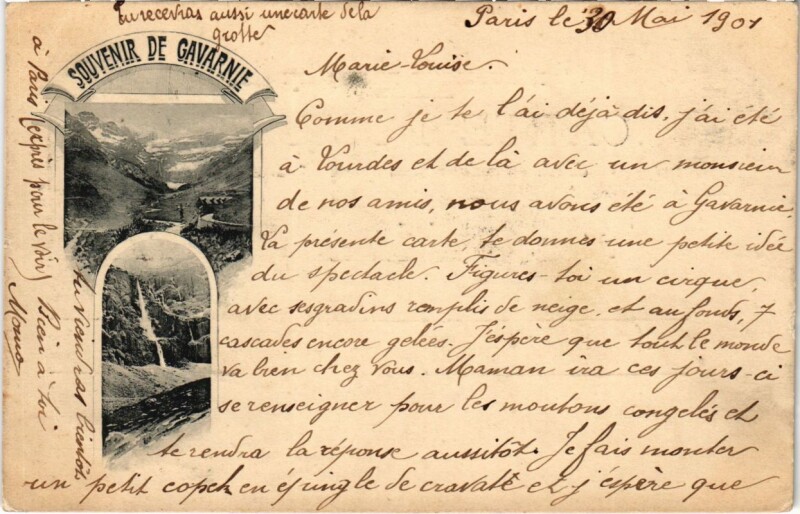 Paris le 30 Mai 1901
SOUVENIR DE GAVARNIE
Marie-Louise.
Comme je te l'ai déjà dis, j'ai été
à Lourdes et de là avec un monsieur
de nos amis, nous avons été à Gavarnie.
La présente carte, te donnes une petite idée
du spectacle. Figures-toi un cirque,
avec ses gradins remplis de neige, et au fonds, 7
cascades encore gelées. J'espère que tout le monde
va bien chez vous. Maman ira ces jours-ci
se renseigner pour les moutons congelés et
te rendra la réponse aussitôt. Je fais monter
un petit copek en épingle de cravate et j'espère que
tu viendras bientôt
à Paris (exprès pour le voir) Bien à toi
Tu recevras aussi une carte de la
grotte